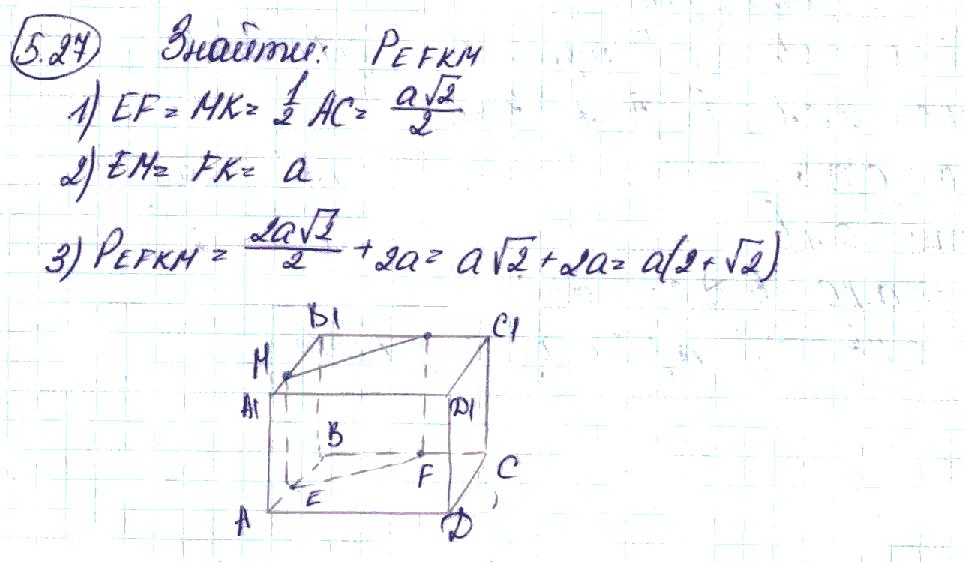 5.27 Знайти: PEFKM
1) EF = MK = 1/2 AC = a√2/2
2) EM = FK = a
3) PEFKM = 2a√2/2 + 2a = a√2 + 2a = a(2 + √2)
B1 C1
M
A1 D1
B
F C
E
A D